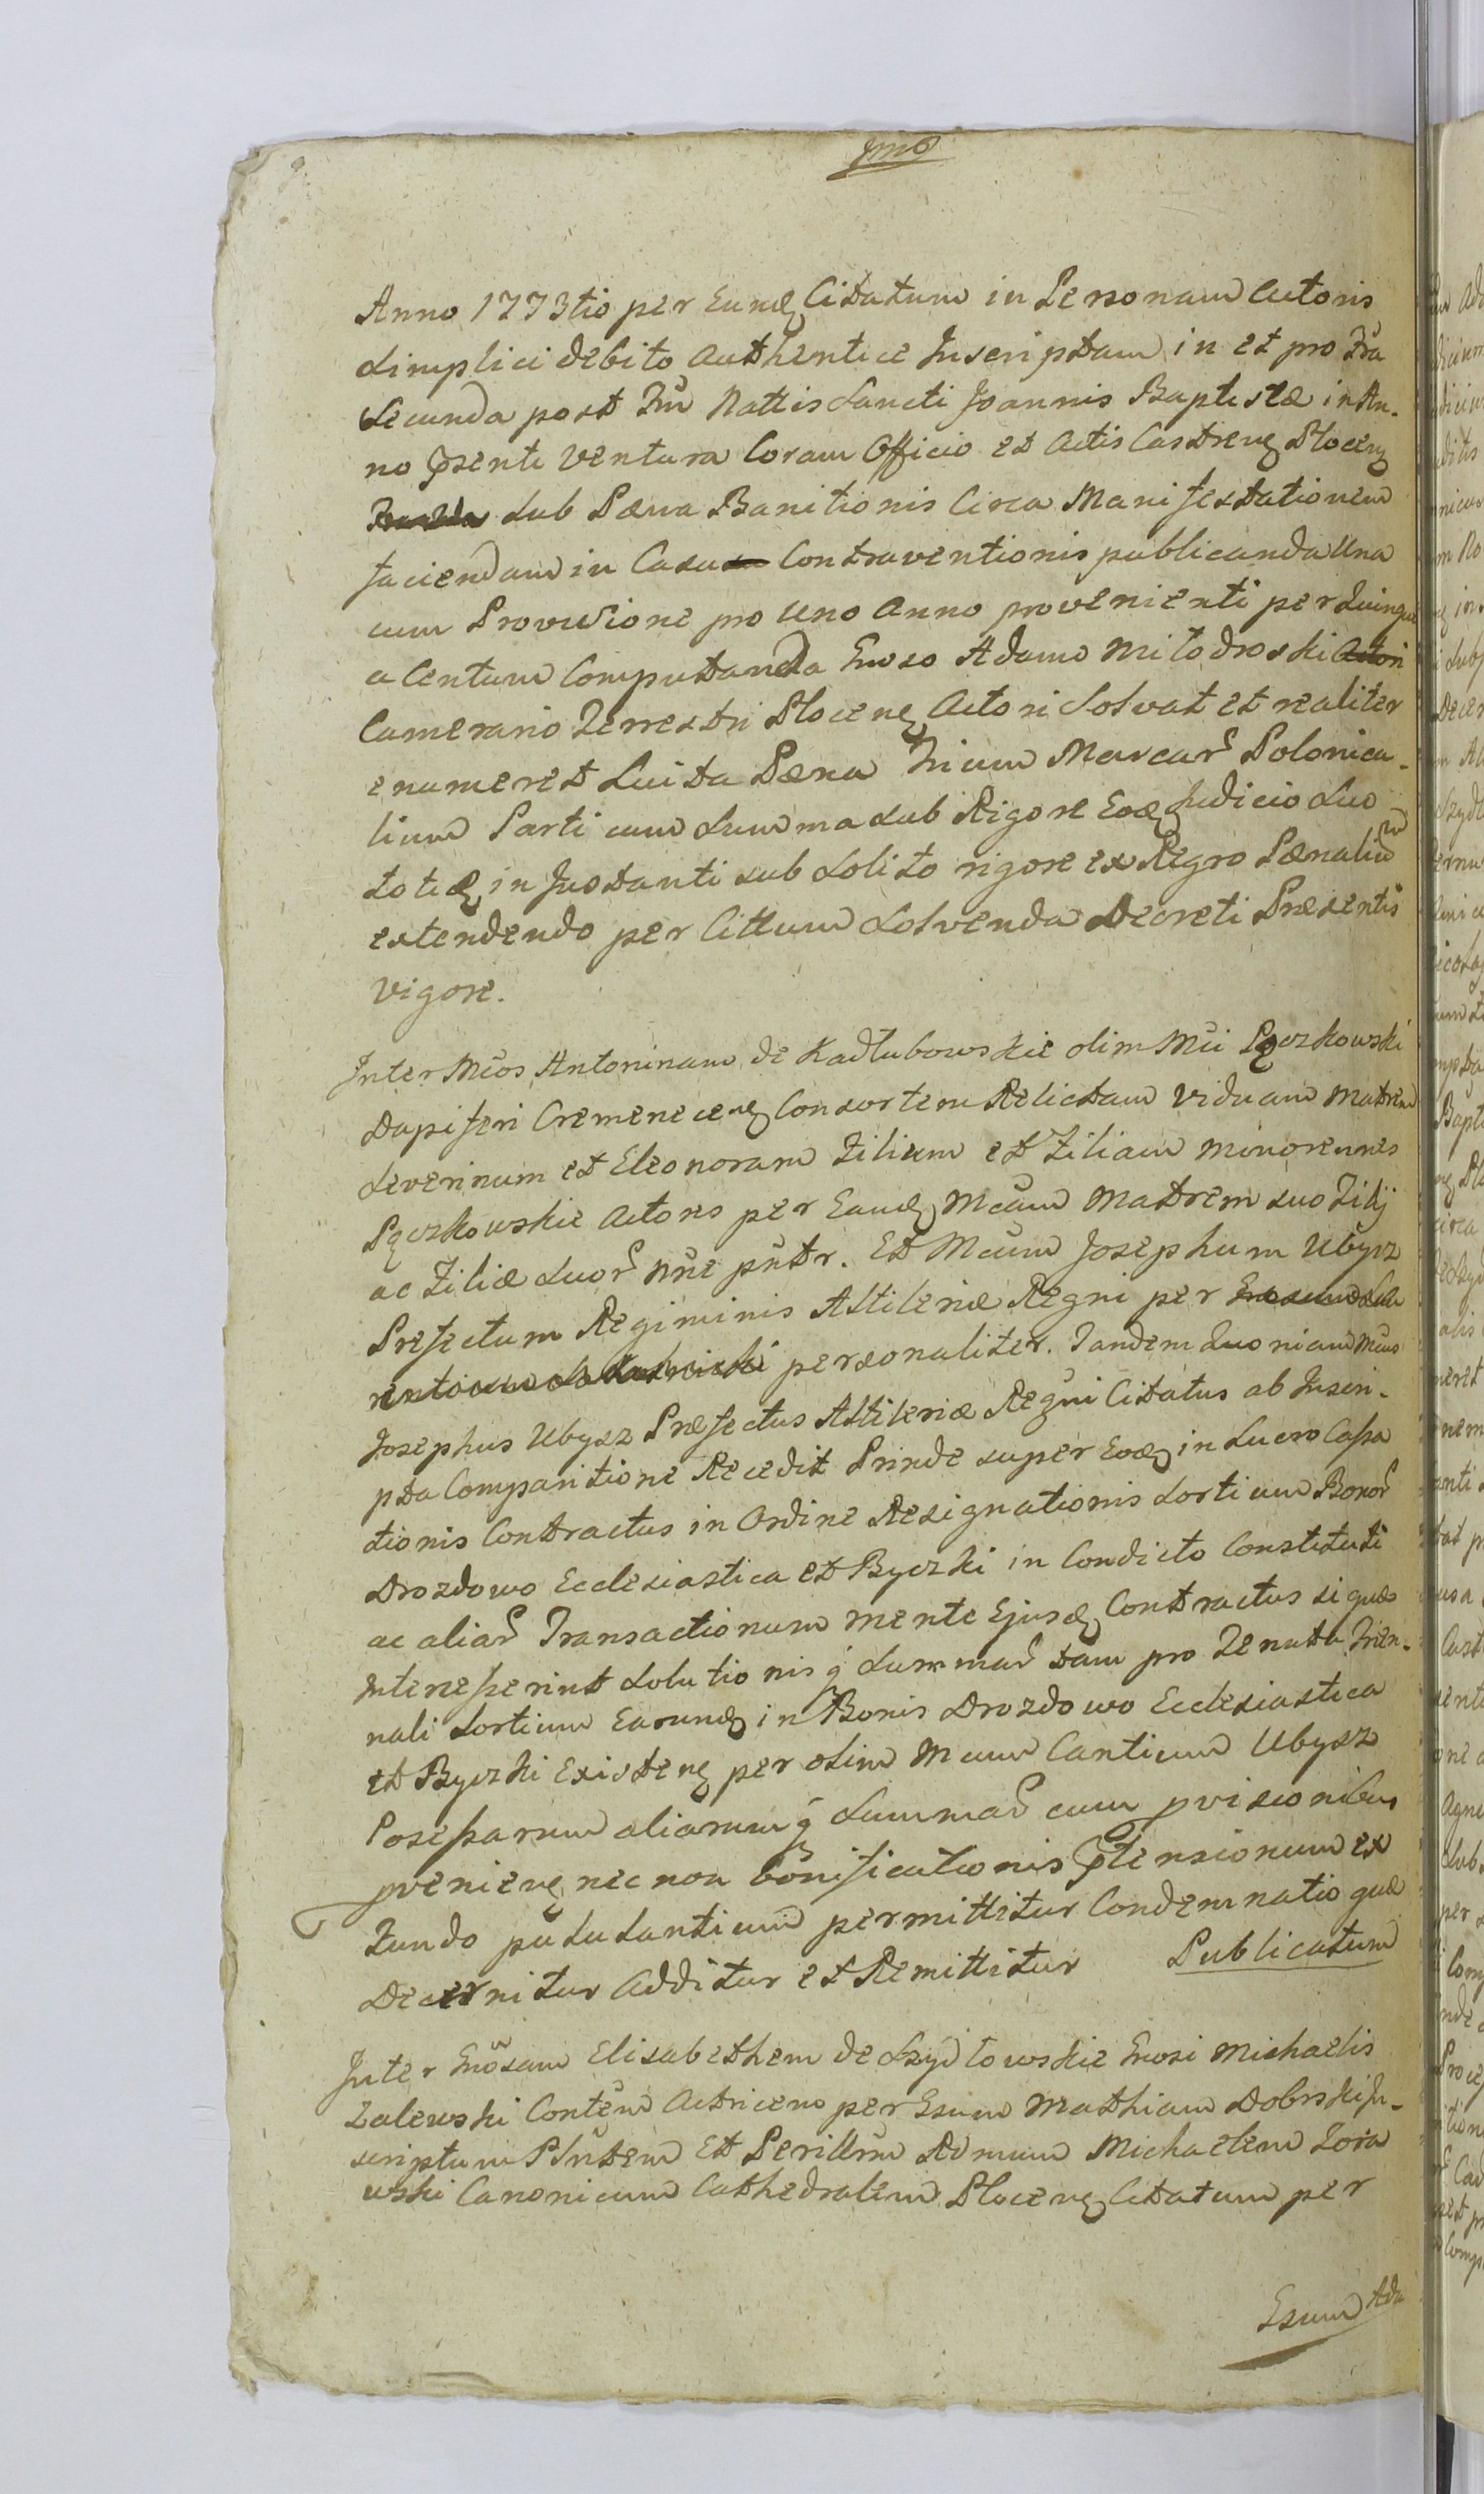 Anno 1773tio per Eundꝫ Citatum in Personam Actoris
Simplici debito Authentice Inscriptam in et pro Fra
Secunda post Ftū Nattis Sancti Joannis Baptistæ in An-
no Pn̄senti Ventura Coram Officio et Actis Castrenꝫ Plocenꝫ
Sub Pæna Banitionis Circa Manifestationem
faciendam in Casu Contraventionis publicanda Una
cum Provisione pro Uno Anno provenienti per Quinque
a Centum Computanda Gnoso Adamo Miłodroski Actori
Camerario Terrestri Plocenꝫ Actori Solvat et realiter
enumeret Luita Pæna Trium Marcar̄ Polonica-
lium Parti cum Summa Sub Rigore Eodꝫ Judicio Suo
totidꝫ in Instanti sub Solito rigore ex Regro Pænaliū
extendendo per Cittum Solvenda Decreti Præsentis
vigore.
Inter Mcos Antoninam de Kadłubowskie olim Mci Pączkowski
Dapiferi Cremenecenꝫ Consortem Relictam Viduam Matrem
Severinum et Eleonoram Filium et Filiam Minorennes
Pączkowskie Actores per Eandꝫ Mcam Matrem suo Filij
ac Filiæ Suor̄ Nn̄e pn̄tr. Et Mcum Josephum Ubysz
Prefectum Regiminis Attileriæ Regni per
personaliter. Tandem Quoniam Mcus
Josephus Ubysz Præfectus Attileriæ Regni Citatus ab Inscri-
pta Comparitione Recedit Prinde super Eodꝫ in Lucro Cassa
tionis Contractus in Ordine Resignationis Sortium Bonor̄
Drozdowo Ecclesiastica et Byczki in Condicto Constituti
ac aliar̄ Transactionum mente Ejusdꝫ Contractus si quæ
Interesserint Solutionis q̄ Summar̄ tam pro Tenuta Trien-
nali Sortium Earundꝫ in Bonis Drozdowo Ecclesiastica
et Byczki Existenꝫ per olim Mcum Cantium Ubysz
Possessarum aliarumq̄ Summar̄ cum pvisionibus
pvenienꝫ nec non bonificationis Ptensionum ex
Fundo pululantium permittitur Condemnatio quæ
Decernitur Additur et Remittitur Publicatum
Inter Gnosam Elisabethem de Szydłowskie Gnosi Michaelis
Zalewski Contem Actricem per Gsum Mathiam Dobrski In-
scriptum Plntem Et Perillrm Rdmum Michaelem Zora
wski Canonicum Cathedralem Plocenꝫ Citatum per
Gsum Ada